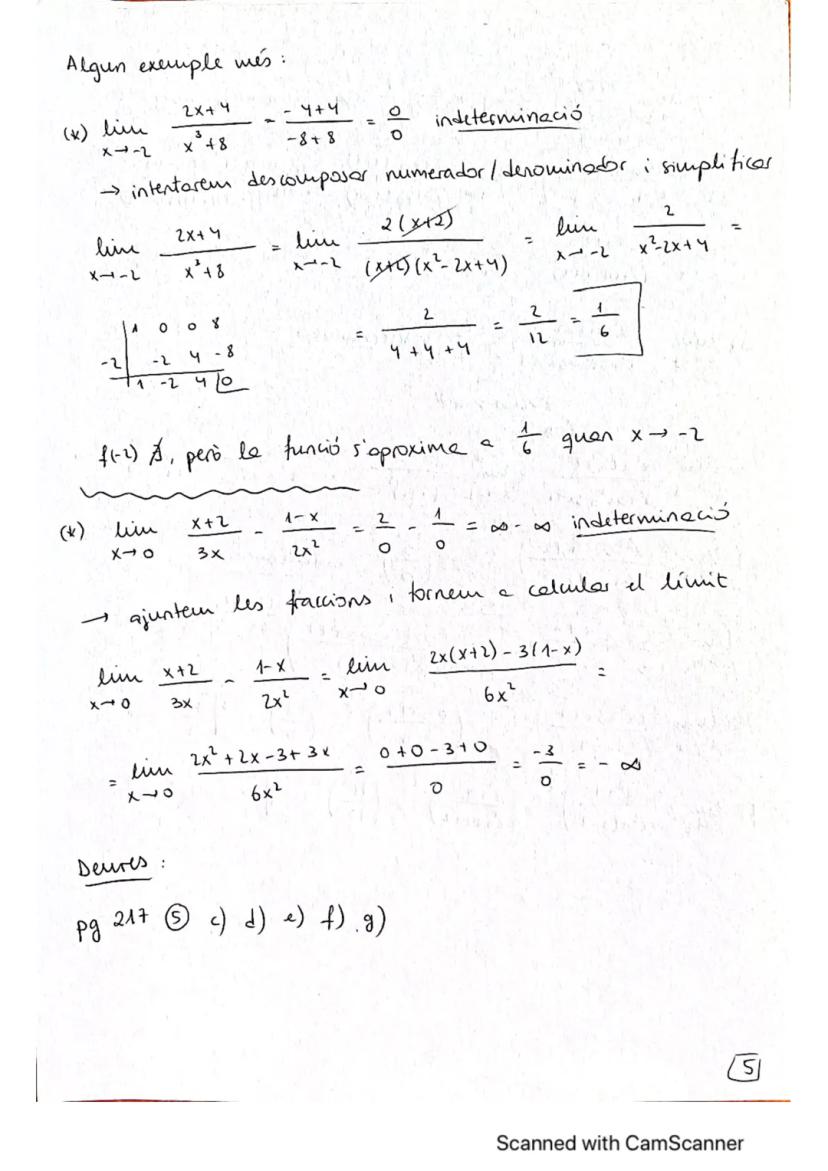 Algun exemple més :
(*) lim x→-2 (2x+4)/(x³+8) = (-4+4)/(-8+8) = 0/0 indeterminació
→ intentarem descomposar numerador/denominador i simplificar
lim x→-2 (2x+4)/(x³+8) = lim x→-2 2(x+2)/((x+2)(x²-2x+4)) = lim x→-2 2/(x²-2x+4) =
= 2/(4+4+4) = 2/12 = 1/6
1 0 0 8
-2 | -2 4 -8
1 -2 4 0
f(-2) ∄, però la funció s'aproxima a 1/6 quan x → -2
(*) lim x→0 (x+2)/3x - (1-x)/2x² = 2/0 - 1/0 = ∞-∞ indeterminació
→ ajuntem les fraccions i tornem a calcular el límit
lim x→0 (x+2)/3x - (1-x)/2x² = lim x→0 (2x(x+2) - 3(1-x))/6x² =
= lim x→0 (2x²+2x-3+3x)/6x² = (0+0-3+0)/0 = -3/0 = -∞
Deures :
pg 217 ⑤ c) d) e) f) g)
5
Scanned with CamScanner